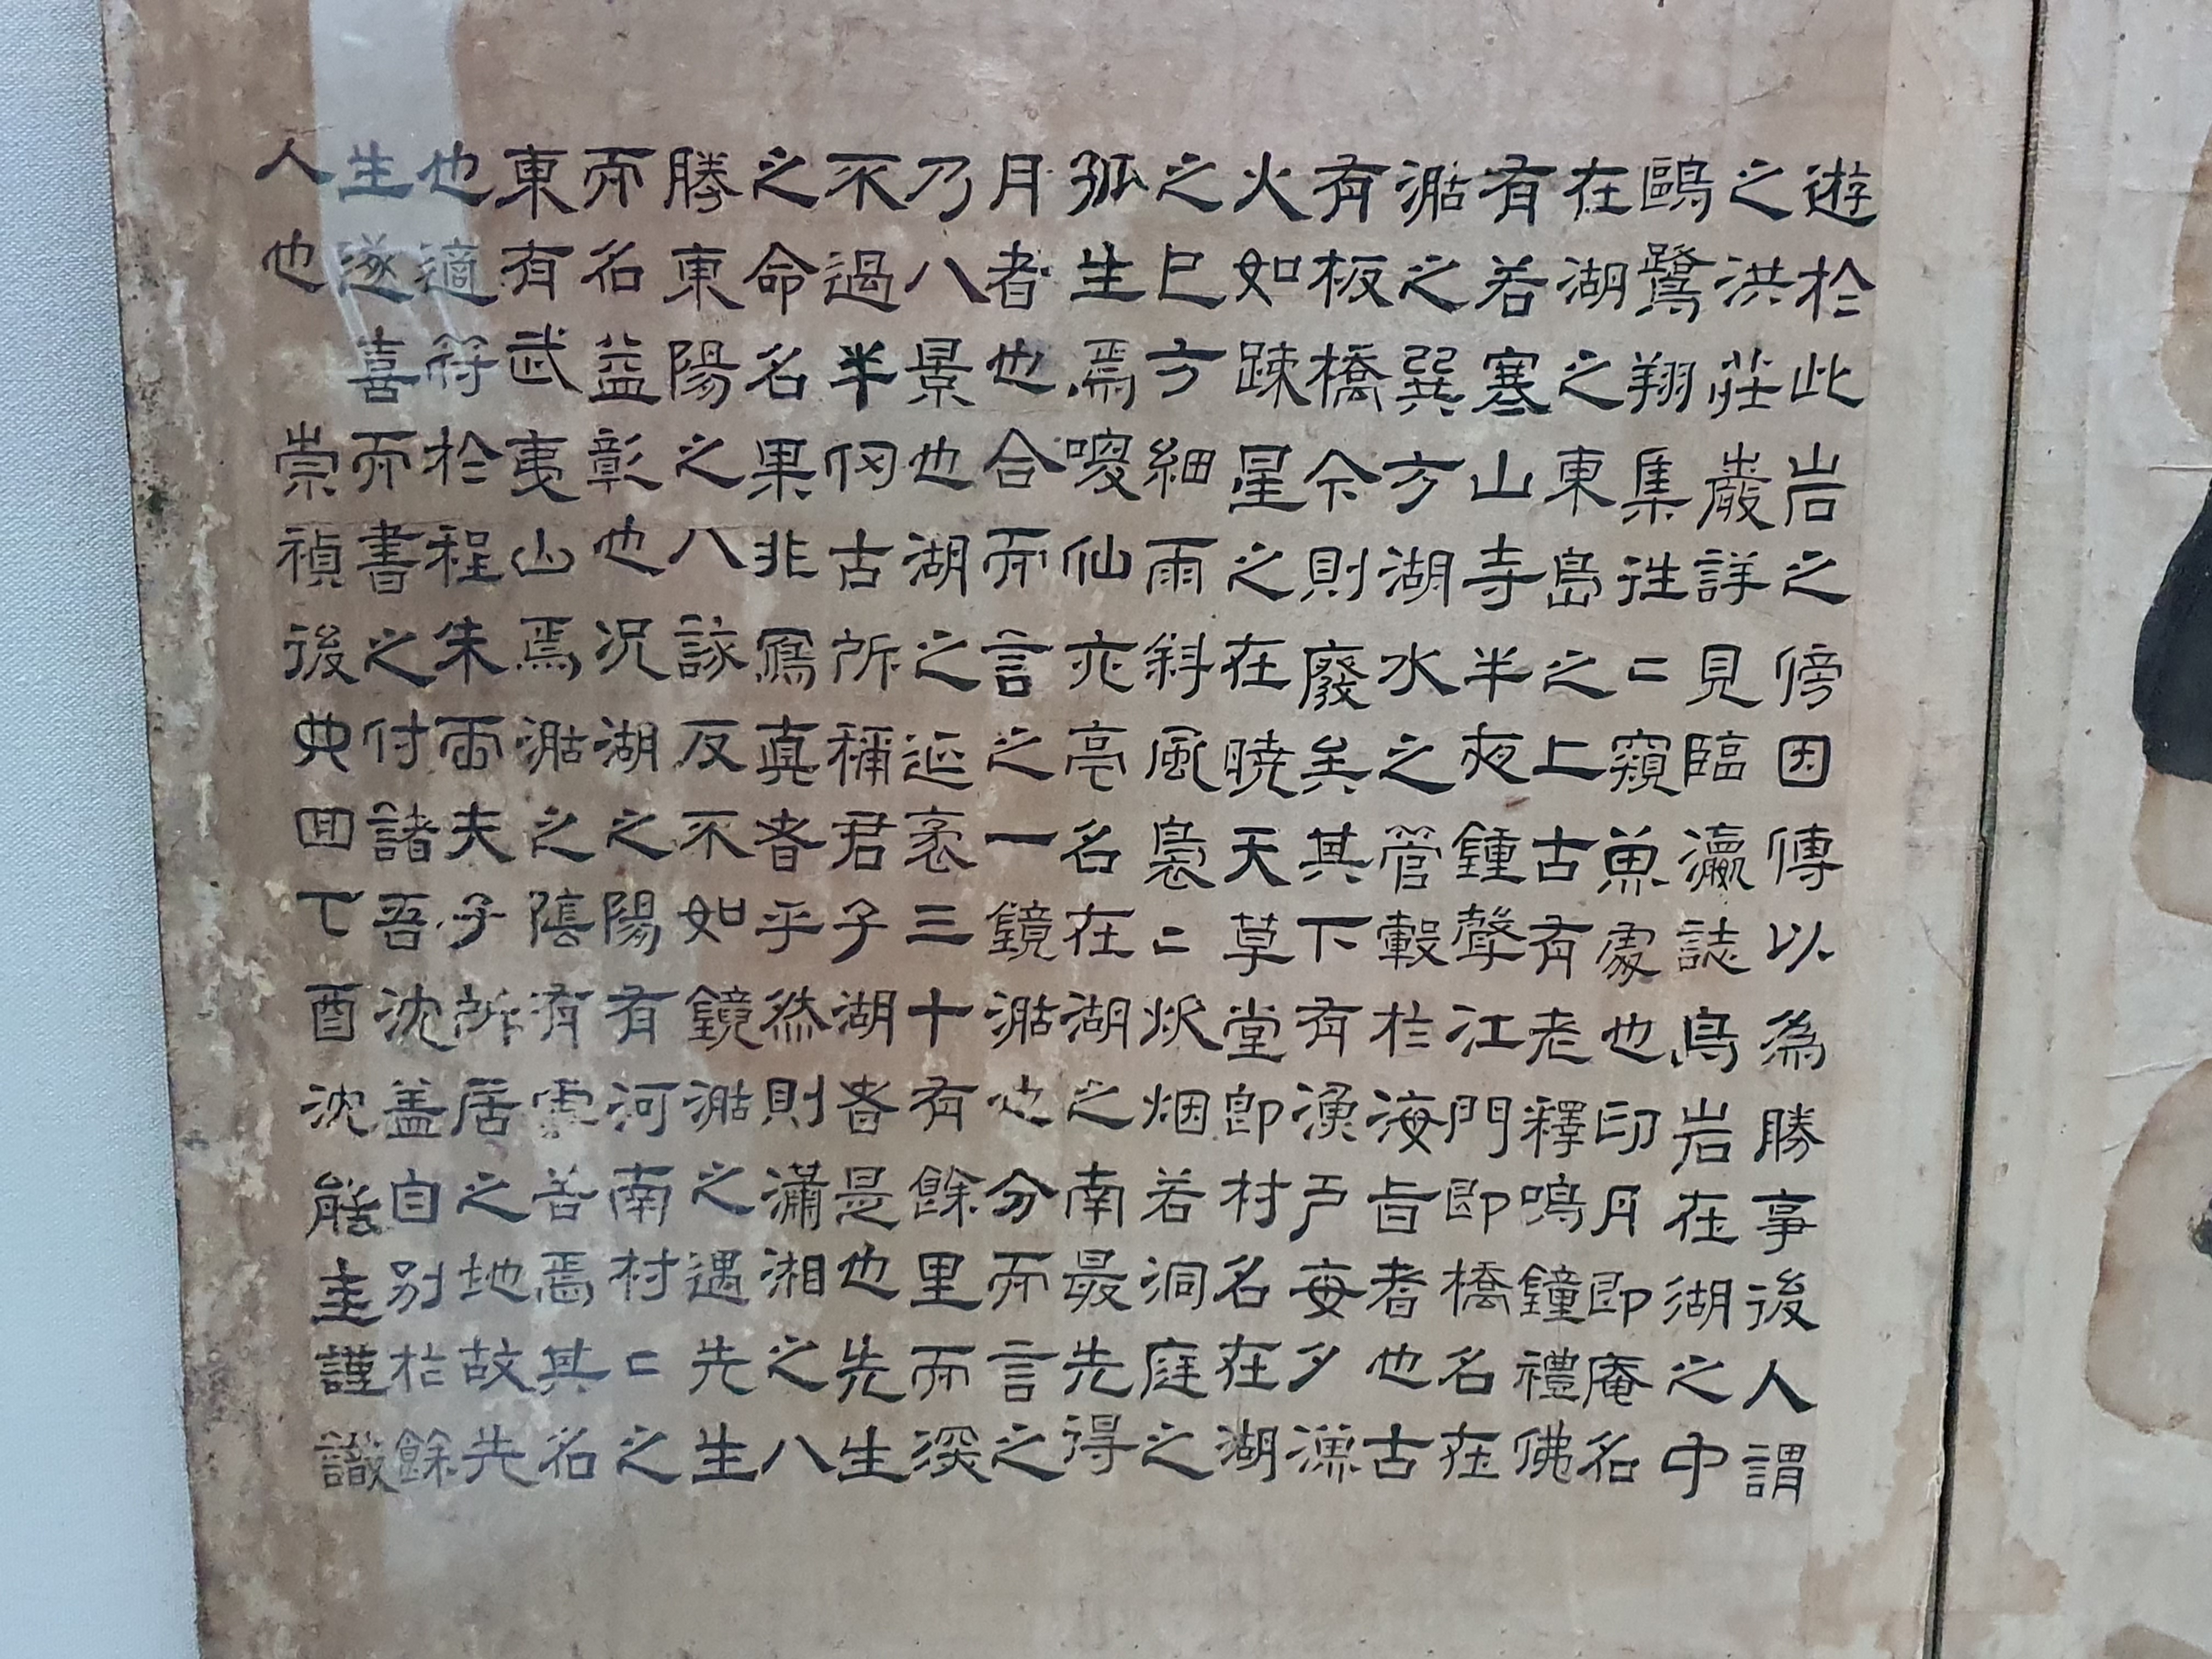 遊於此岩之傍因傳以為勝事後人謂
之洪莊巖詳見臨瀛誌鳥岩在湖之中
鷗鷺翔集徃二窺魚處也印月即庵名
在湖之東島之上古有老釋鳴鐘禮佛
有若寒山寺半夜鍾聲江門即橋名在
湖之巽方湖水之管轂於海旨者也古
有板橋今則廢矣其下有漁戶每夕漁
火如踈星之在曉天草堂即村名在湖
之巳方細雨斜風裊二炊烟若洞庭之
孤生焉嗄仙亦亭名在湖之南最先得
月者也合而言之一鏡湖也分而言之
乃八景也湖之延袤三十有餘里而深
不過半仞古所稱君子湖者是也先生
之命名果非寫真者乎然則瀟湘之八
勝東陽之八詠反不如鏡湖之遇先生
而名益彰也况湖之陽有河南村二之
東有武夷山焉湖之陰有雲谷焉其名
也適符於程朱兩夫子所居之地故先
生遂喜而書之付諸吾沈盖自別於餘
人也
崇禎後典四丁酉沈能圭謹識